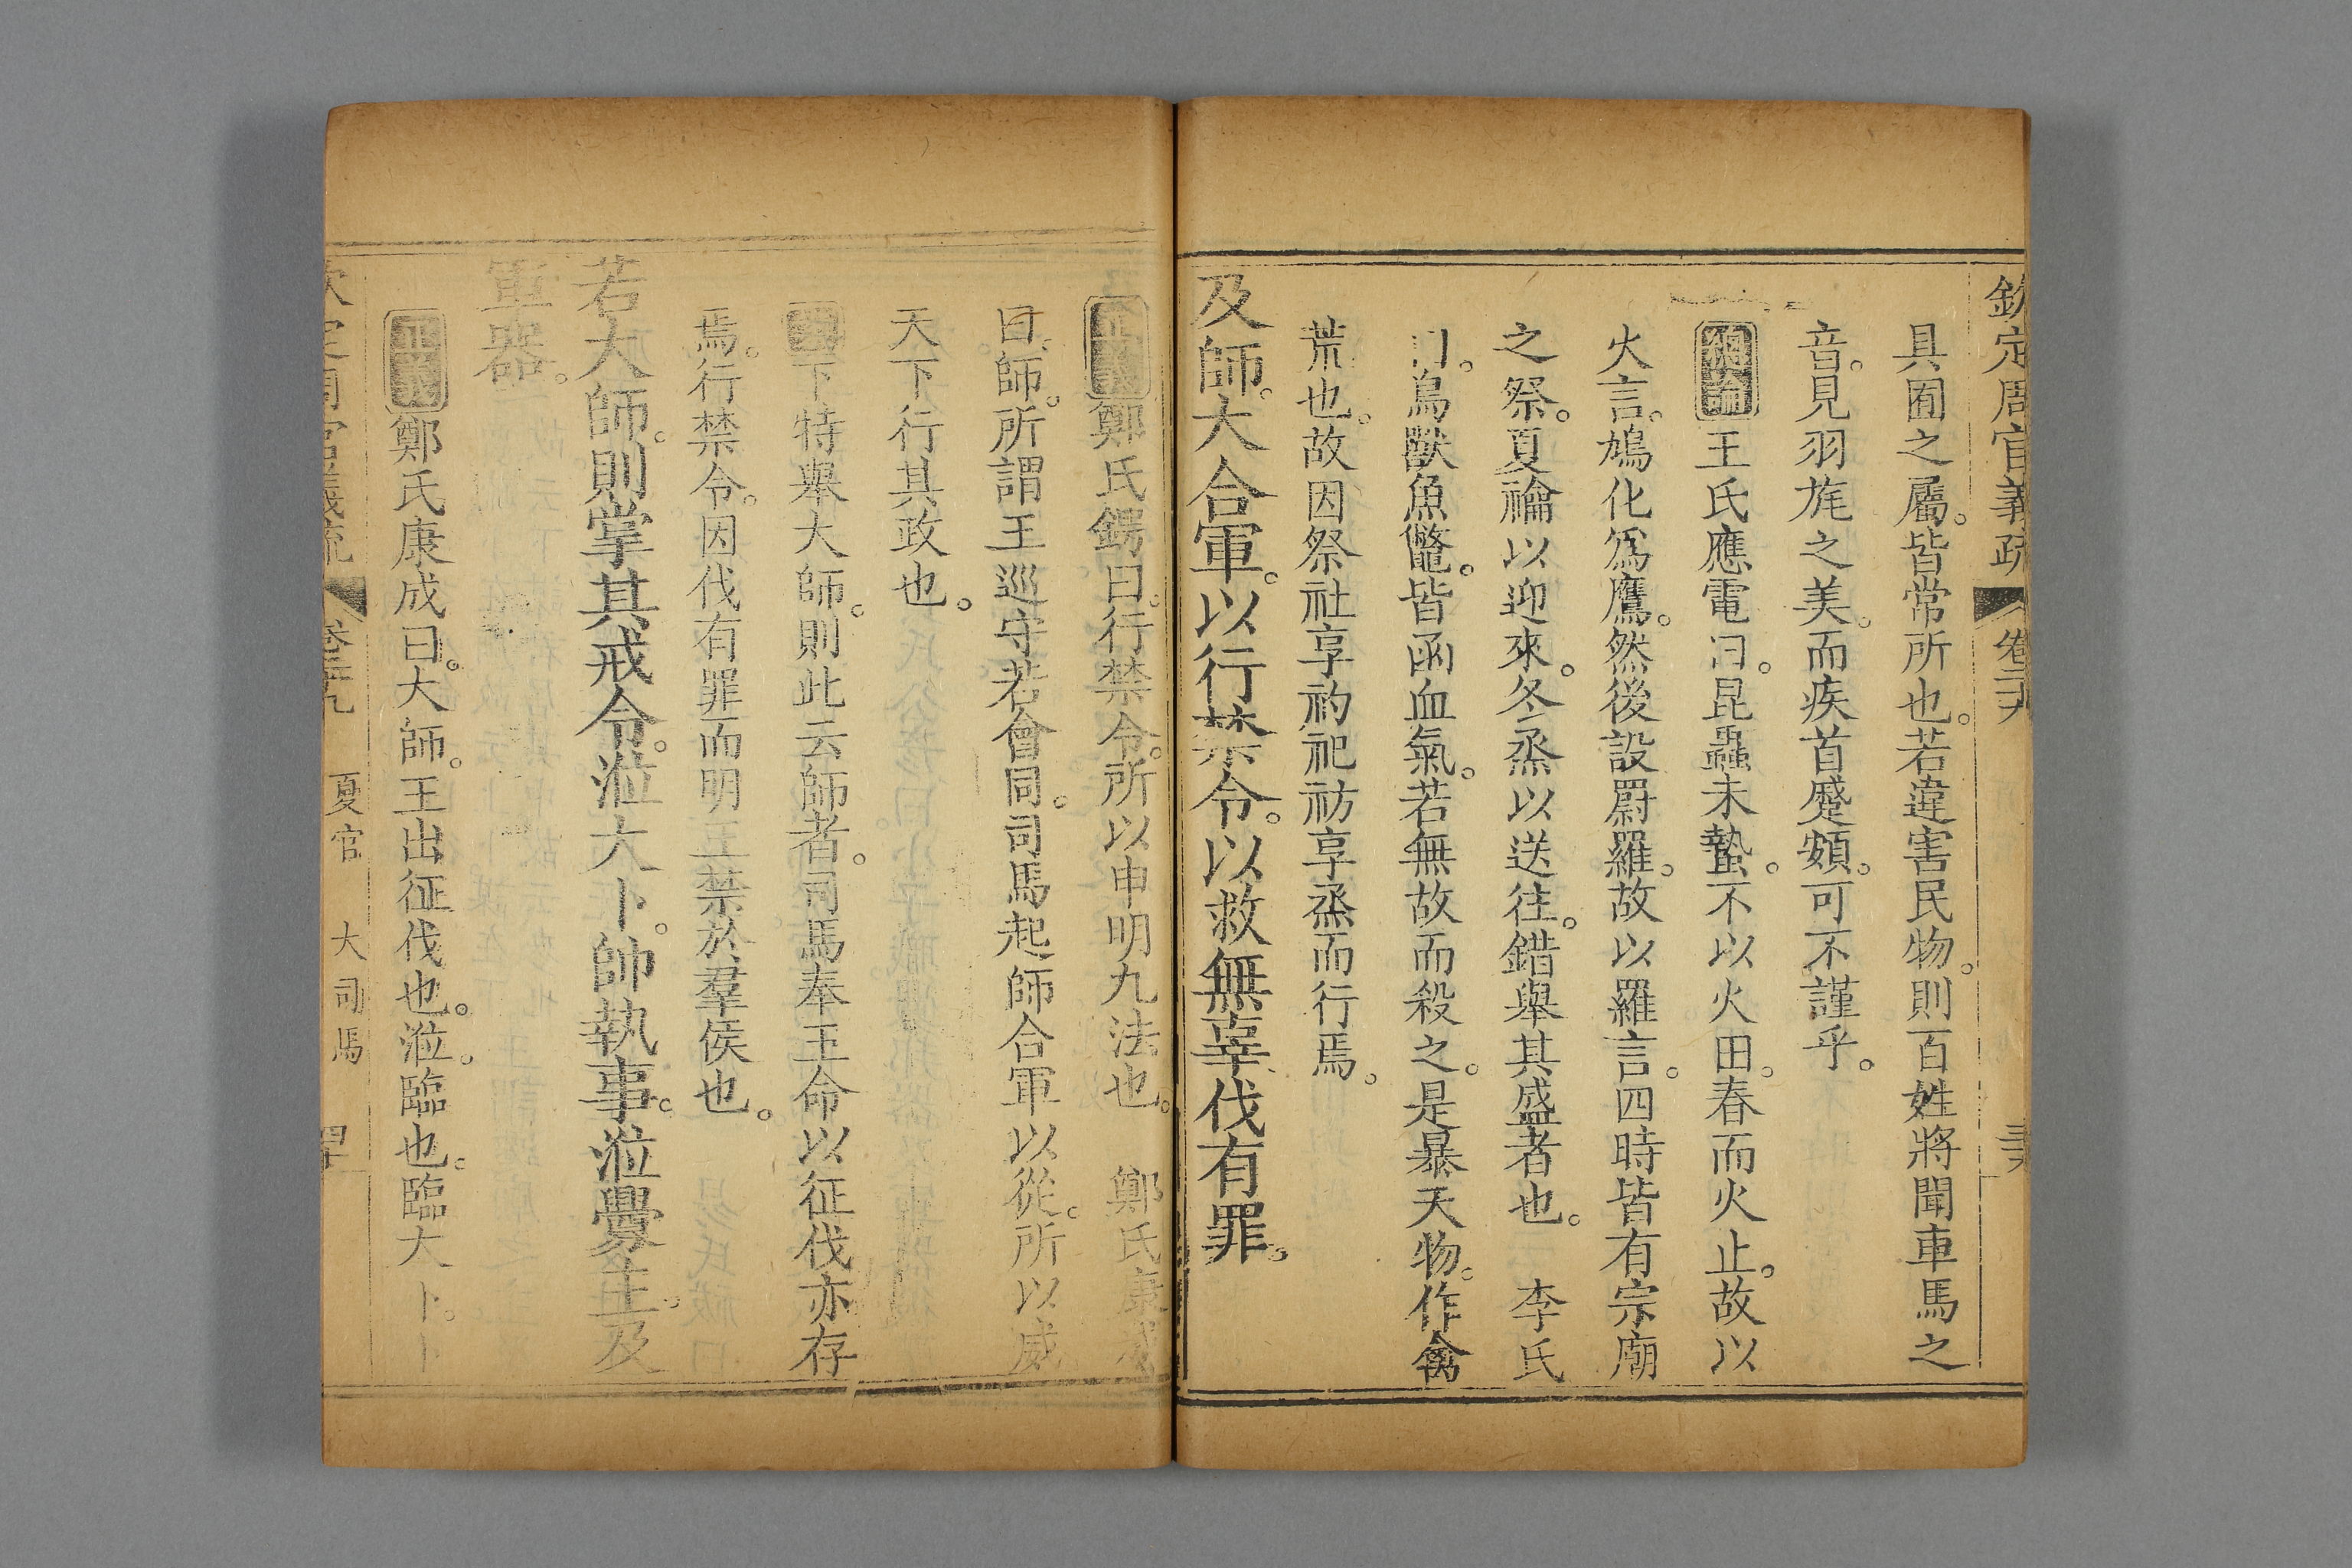 欽定周官義疏 卷二十九
具囿之屬。皆常所也。若違害民物。則百姓將聞車馬之
音。見羽旄之美。而疾首蹙頞。可不謹乎。
總論王氏應電曰。昆蟲未蟄。不以火田。春而火止。故以
火言。鳩化爲鷹。然後設罻羅。故以羅言。四時皆有宗廟
之祭。夏禴以迎來。冬烝以送往。錯舉其盛者也。 李氏
曰。鳥獸魚鼈。皆函血氣。若無故而殺之。是暴天物。作禽
荒也。故因祭社享礿祀祊享烝而行焉。
及師。大合軍。以行禁令。以救無辜伐有罪。
正義鄭氏鍔曰。行禁令。所以申明九法也。 鄭氏康成
曰。師。所謂王巡守若會同。司馬起師合軍以從。所以威
天下行其政也。
下特舉大師。則此云師者。司馬奉王命以征伐亦存
焉。行禁令。因伐有罪而明王禁於羣侯也。 易氏祓曰
若大師。則掌其戒令。涖大卜。帥執事。涖釁主。及
軍器。
正義鄭氏康成曰。大師。王出征伐也。涖。臨也。臨大卜。卜
欽定周官義疏 卷二十九 夏官 大司馬